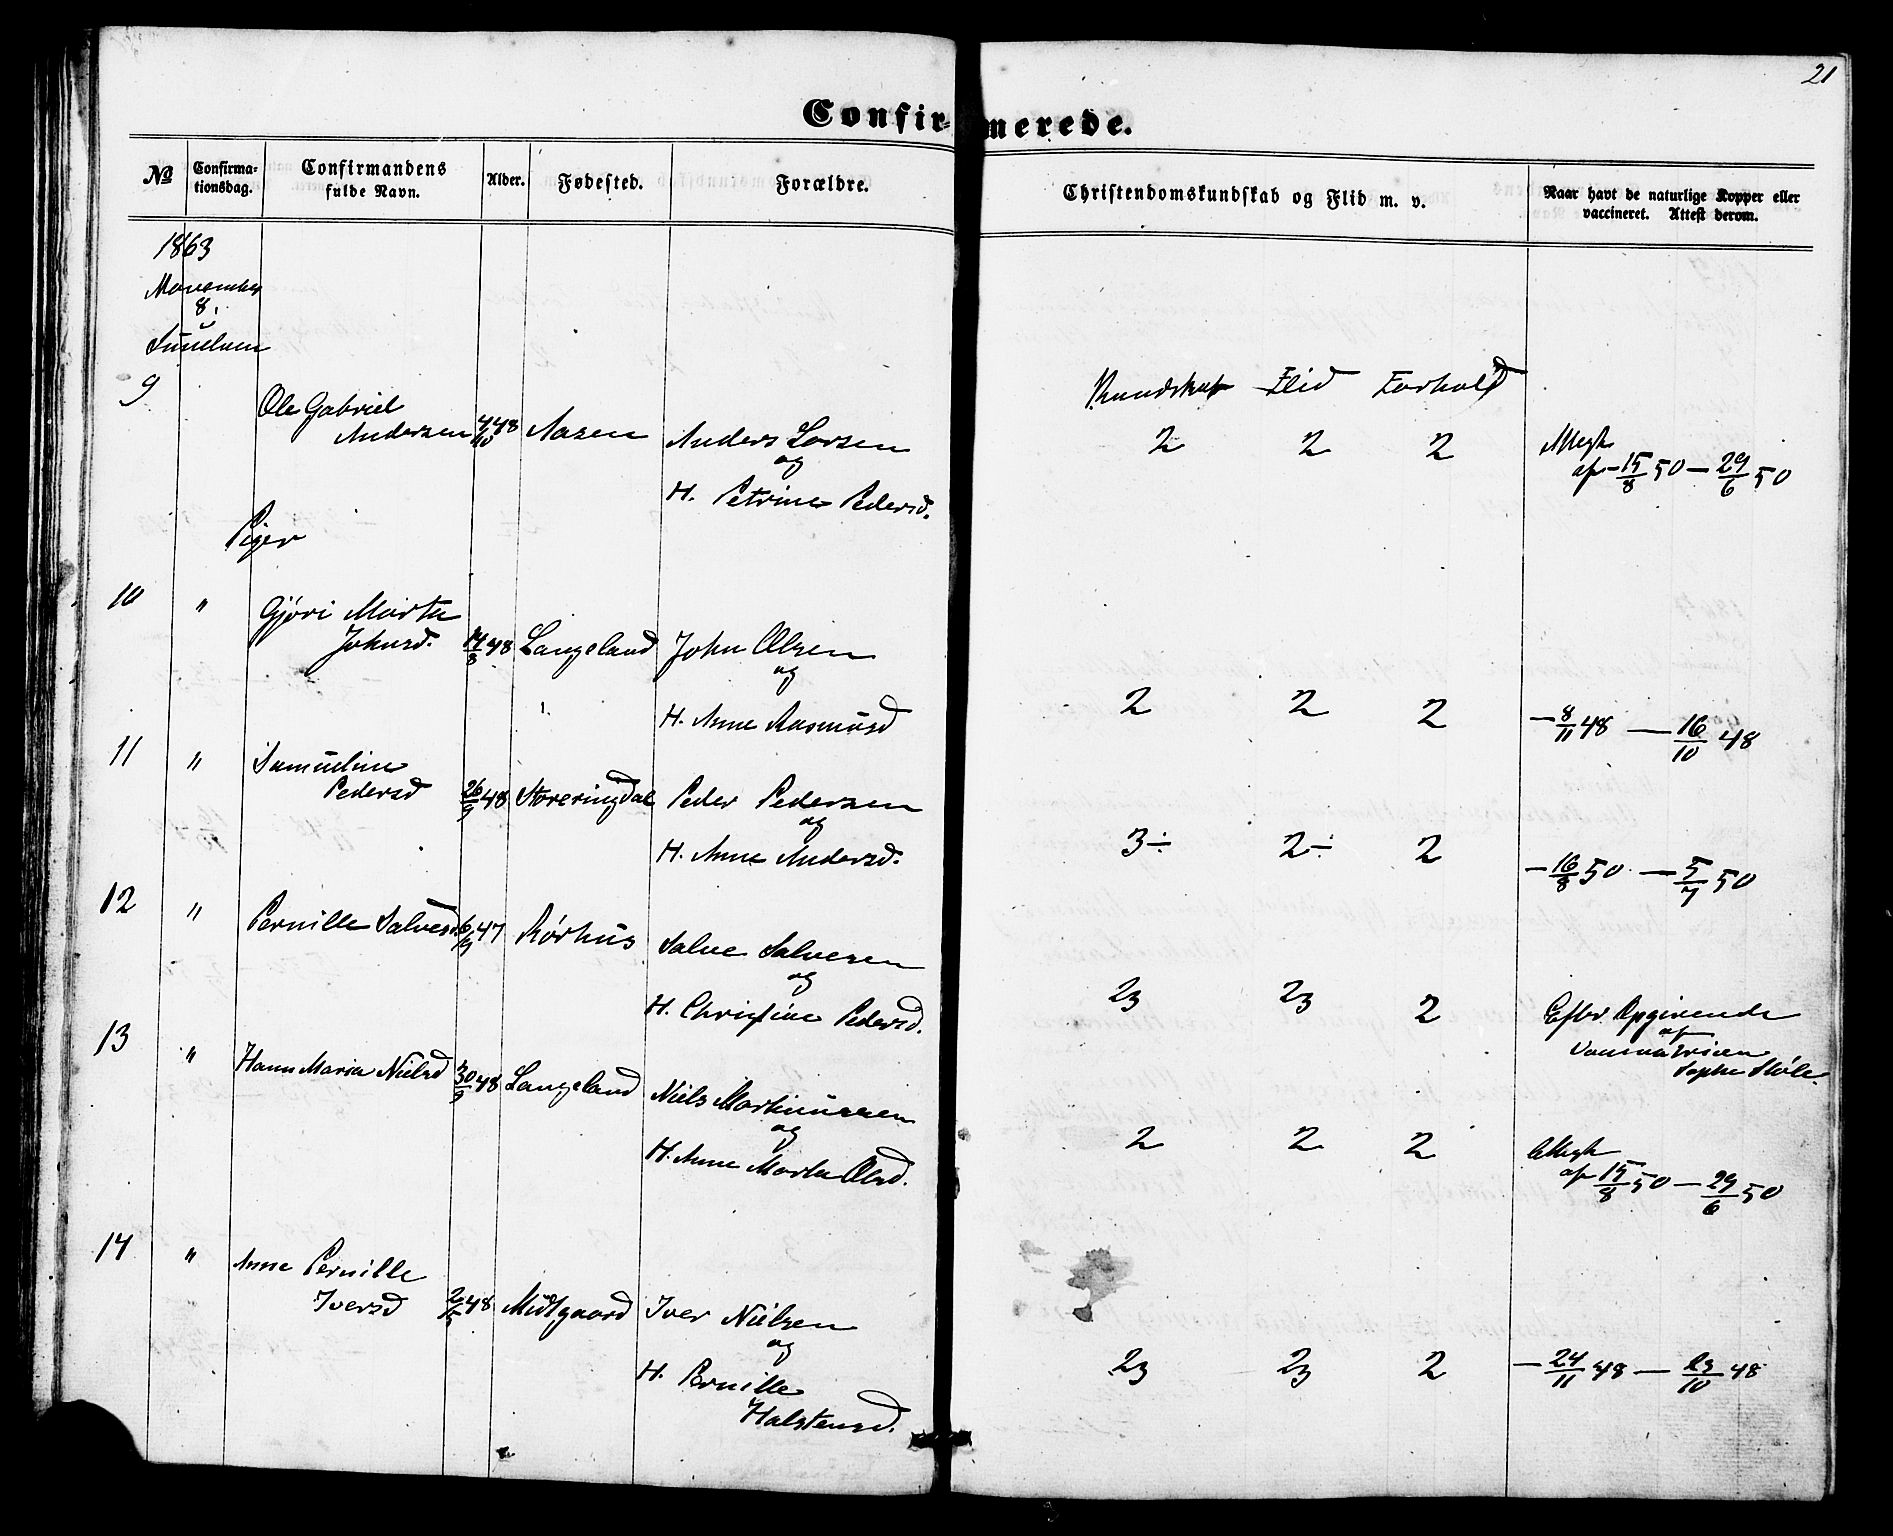 21
Confirmerede.
No
Confirmationsdag.
Confirmandens fulde Navn.
Alder.
Fødested.
Forældre.
Christendomskundskab og Flid m. v.
Naar havt de naturlige Kopper eller vaccineret. Attest derom.
1863
November
8.
Kundskab Flid Forhold
9 Ole Gabriel
Andersen 4/10 48 Aasen Anders Larsen 2 2 2 Attest
og af 15/8 50 — 29/6 50
H. Petrine Pedersd.
Piger
10 " Gjøri Marta
Johnsd. 14/8 48 Langeland John Olsen
og
H. Anne Rasmusd 2 2 2 — 8/11 48 — 16/10 48
11 " Samueline
Pedersd 26/9 48 Storeringdal Peder Pedersen
og
H. Anne Andersd. 3÷ 2÷ 2 — 16/8 50 — 5/7 50
12 " Pernille Salvesd. 6/9 47 Rørhus Salve Salvesen
og
H. Christine Pedersd. 23 23 2 Efter Opgivende
af
Sophie Støle.
13 " Hanne Maria Nielsd 30/9 48 Langeland Niels Martinussen
og
H. Anne Marta Olsd. 2 2 2 Attest
af 15/8 50 — 29/6 50
14 " Anne Pernille
Iversd 2/5 48 Midtgaard Iver Nielsen
og
H. Pernille
Halstensd. 23 23 2 — 24/11 48 — 23/10 48